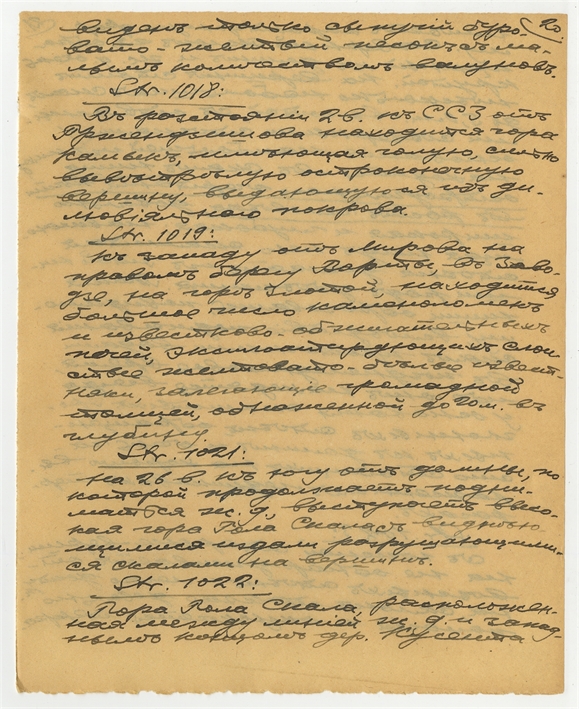 20.
виденъ только сыпучій буро-
вато-желтый песокъ съ ма-
лымъ количествомъ валуновъ.
Str. 1018:
Въ разстояніи 2 в. къ ССЗ отъ
находится гора
Камыкъ, имѣющая голую, сильно
вывѣтрѣлую остроконечную
вершину, выдающуюся изъ ди-
лювіяльного покрова.
Str. 1019:
Къ западу отъ Мирова на
правомъ берегу Варты, въ Заво-
дзе, на горѣ Злотой, находится
большое число каменоломенъ
и известково-обжигательныхъ
печей, эксплоатирующихъ слои-
стые желтовато-бѣлые извест-
няки, залегающіе громадной
толщей, обнаженной до 20 м. въ
глубину.
Str. 1021:
на 26 в. къ югу отъ долины, по
которой продолжаетъ подни-
маться ж. д., выступаетъ высо-
кая гора Гола Скала съ виднѣю-
щимися издали разрушающими-
ся скалами на вершинѣ.
Str. 1022:
Гора Гола Скала, расположен-
ная между линіей ж. д. и запад-
нымъ концомъ дер.